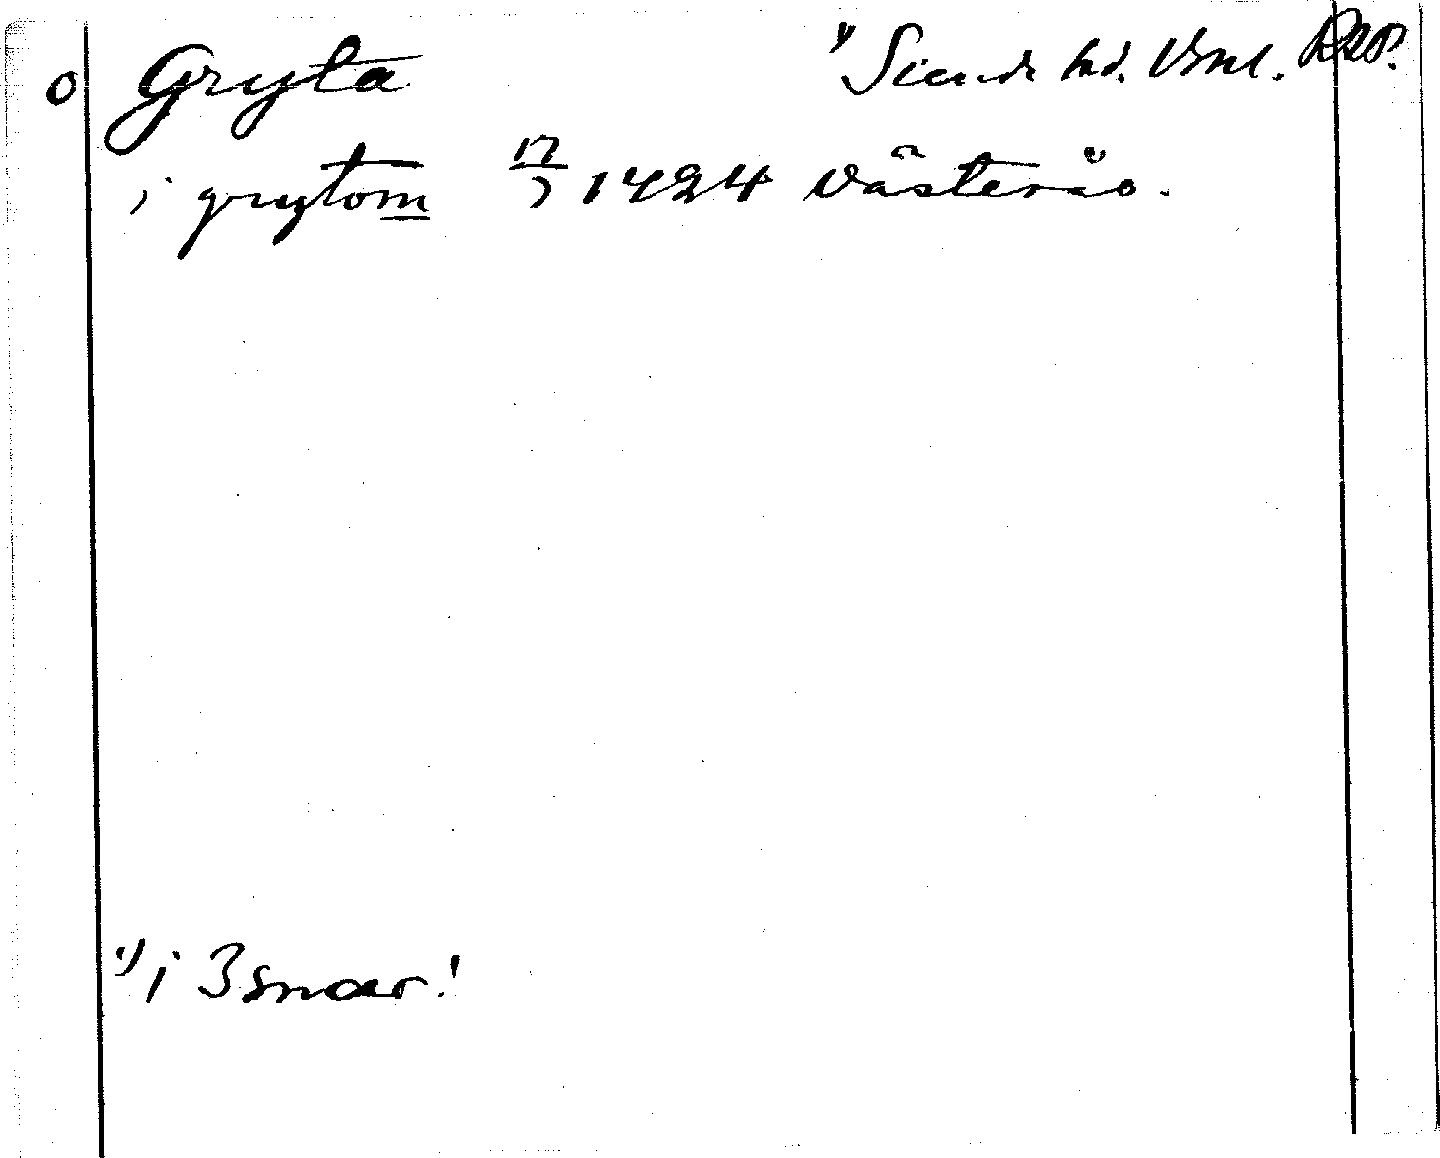 o Gryta " Siende hd. Vsml. RAP.
i grytom 17/7 1424 Västerås.
") i 3 snoar!